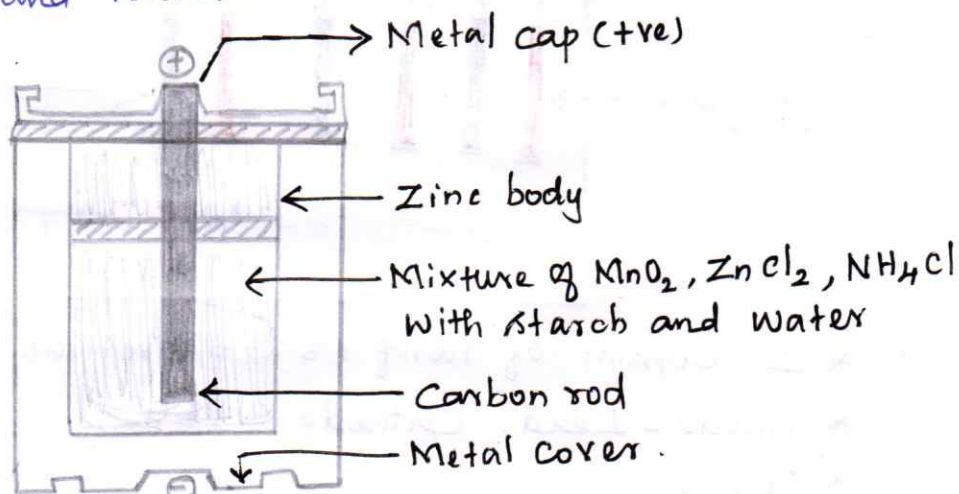 and
+
Metal cap (+ve)
Zinc body
Mixture of MnO₂, ZnCl₂, NH₄Cl
with starch and water
Carbon rod
Metal cover.
−